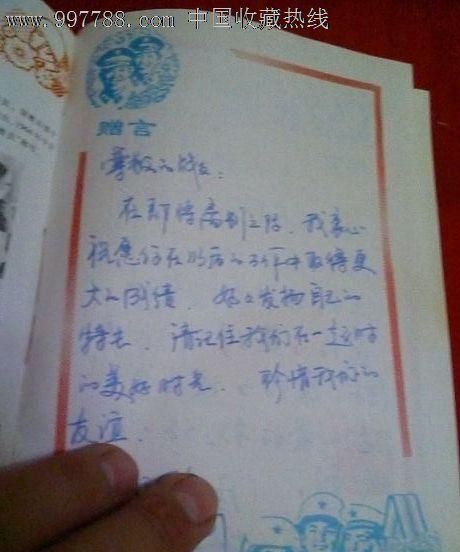 www.997788.com 中国收藏热线
赠言
尊敬的战友:
在即将离别之际,我衷心
祝愿你在以后的工作中取得更
大的成绩,好好发扬自己的
特长,请记住我们在一起时
的美好时光,珍惜我们的
友谊.